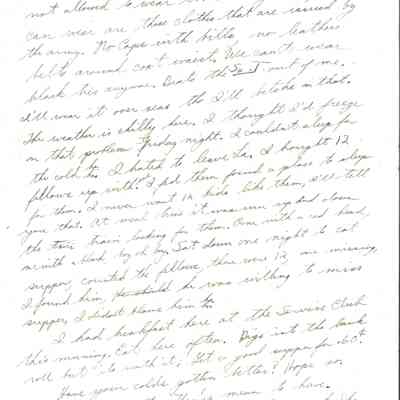 not allowed to wear
can wear are those clothes that are issued by
the army. No caps with bills, no leather
belts around coat waist. We can't wear
black ties anymore. Beats the out of me.
I'll wear it over seas tho I'll be like on that.
The weather is chilly here. I thought I'd freeze
on that problem Friday night. I couldn't sleep for
the cold. I hated to leave La. I brought 12
fellows up with me. I had them found a place to sleep
for them. I never want 12 kids like them, I'll tell
you that. At meal time it was up and down
the train looking for them. One with a red head,
with a black by oh by. Sat down one night to eat
supper, counted the fellows, there were 12, one missing,
I found him, he was willing to miss
supper, I didn't blame him
I had breakfast here at the Service Club
this morning. Eat here often. Digs into the bank
roll but to with it. Get a good supper for 60¢.
Have your colds gotten better? Hope so.
mean to have.